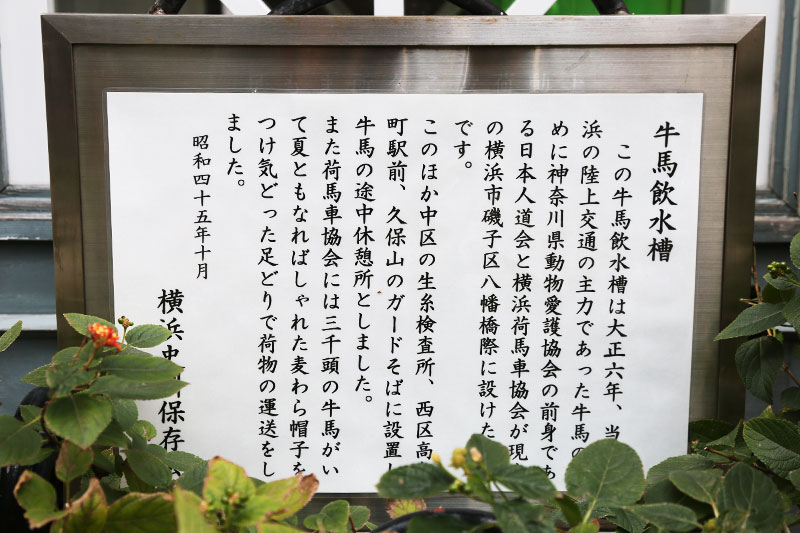 牛馬飲水槽
この牛馬飲水槽は大正六年、当
浜の陸上交通の主力であった牛馬の
めに神奈川県動物愛護協会の前身であ
る日本人道会と横浜荷馬車協会が現
の横浜市磯子区八幡橋際に設けた
です。
このほか中区の生糸検査所、西区高
町駅前、久保山のガードそばに設置し
牛馬の途中休憩所としました。
また荷馬車協会には三千頭の牛馬がい
て夏ともなればしゃれた麦わら帽子を
つけ気どった足どりで荷物の運送をし
ました。
昭和四十五年十月
横浜史料保存